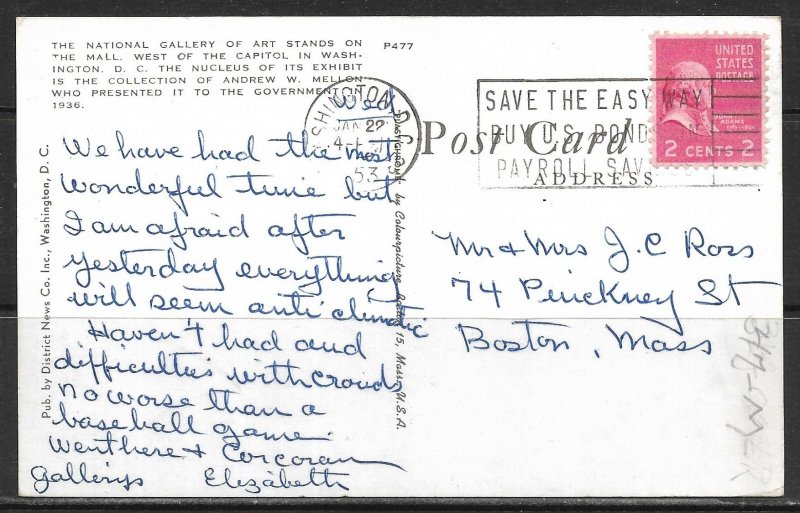 THE NATIONAL GALLERY OF ART STANDS ON
THE MALL, WEST OF THE CAPITOL IN WASH-
INGTON, D. C. THE NUCLEUS OF ITS EXHIBIT
IS THE COLLECTION OF ANDREW W. MELLON
WHO PRESENTED IT TO THE GOVERNMENT IN
1936.
P477
Wed
We have had the most
wonderful time but
I am afraid after
yesterday everything
will seem anti climatic
Haven't had and
difficulties with crowds
no worse than a
baseball game.
Went here + Corcoran
gallerys Elizabeth
Pub. by District News Co., Inc., Washington, D. C.
by Colourpicture 15, Mass., U.S.A.
WASHINGTON, D.C.
JAN 22
53
SAVE THE EASY WAY
BUY U.S. BONDS
PAYROLL SAV
UNITED
STATES
POSTAGE
JOHN
ADAMS
2 CENTS 2
Post Card
ADDRESS
Mr & Mrs J. C Ross
74 Pinckney St
Boston, Mass